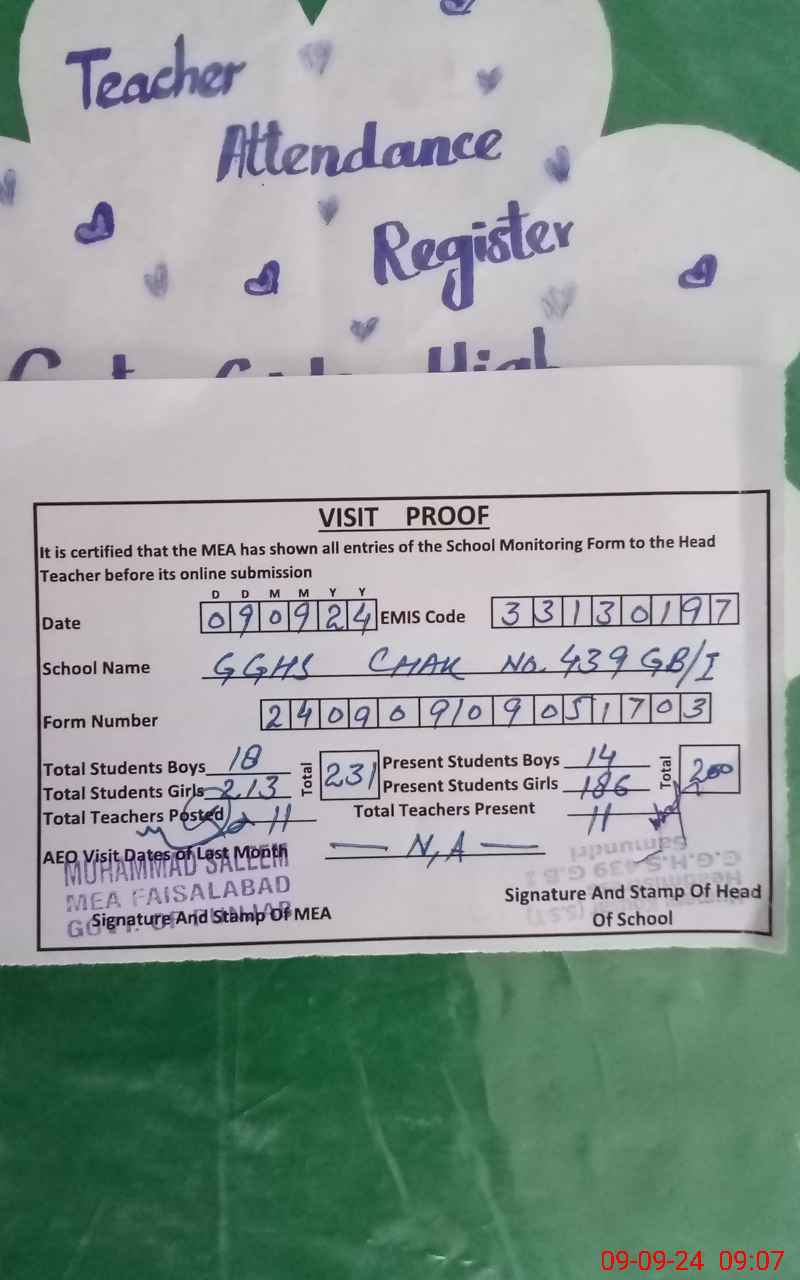 Teacher
Attendance
Register
VISIT PROOF
It is certified that the MEA has shown all entries of the School Monitoring Form to the Head
Teacher before its online submission
D D M M Y Y
Date 090924 EMIS Code 33130197
School Name GGHS CHAK NO. 439 GB/I
Form Number 24090909051703
Total Students Boys 18 Total 231 Present Students Boys 14 Total 200
Total Students Girls 213 Present Students Girls 186
Total Teachers Posted 11 Total Teachers Present 11
AEO Visit Dates of Last Month N,A
MUHAMMAD SALEEM
MEA FAISALABAD
GOVT. OF PUNJAB
Signature And Stamp Of MEA
Signature And Stamp Of Head
Of School
09-09-24 09:07